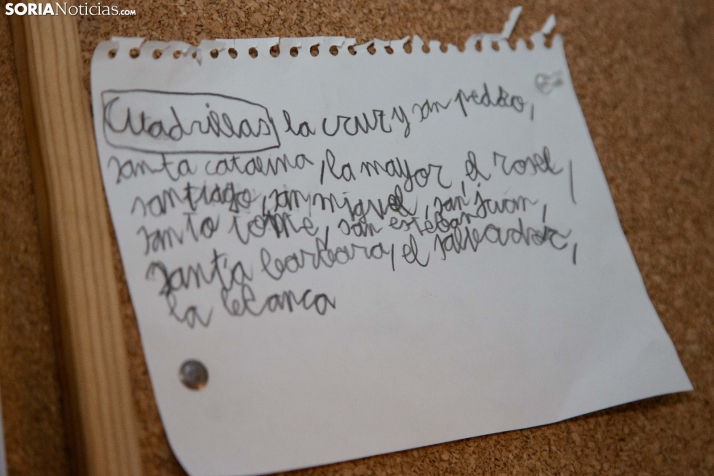 SORIANoticias.com
Cuadrillas, la cruz y san pedro,
santa catalina, la mayor, el rosel,
santiago, san miguel, san juan,
santo tome, san esteban
santa barbara, el salvador,
la blanca